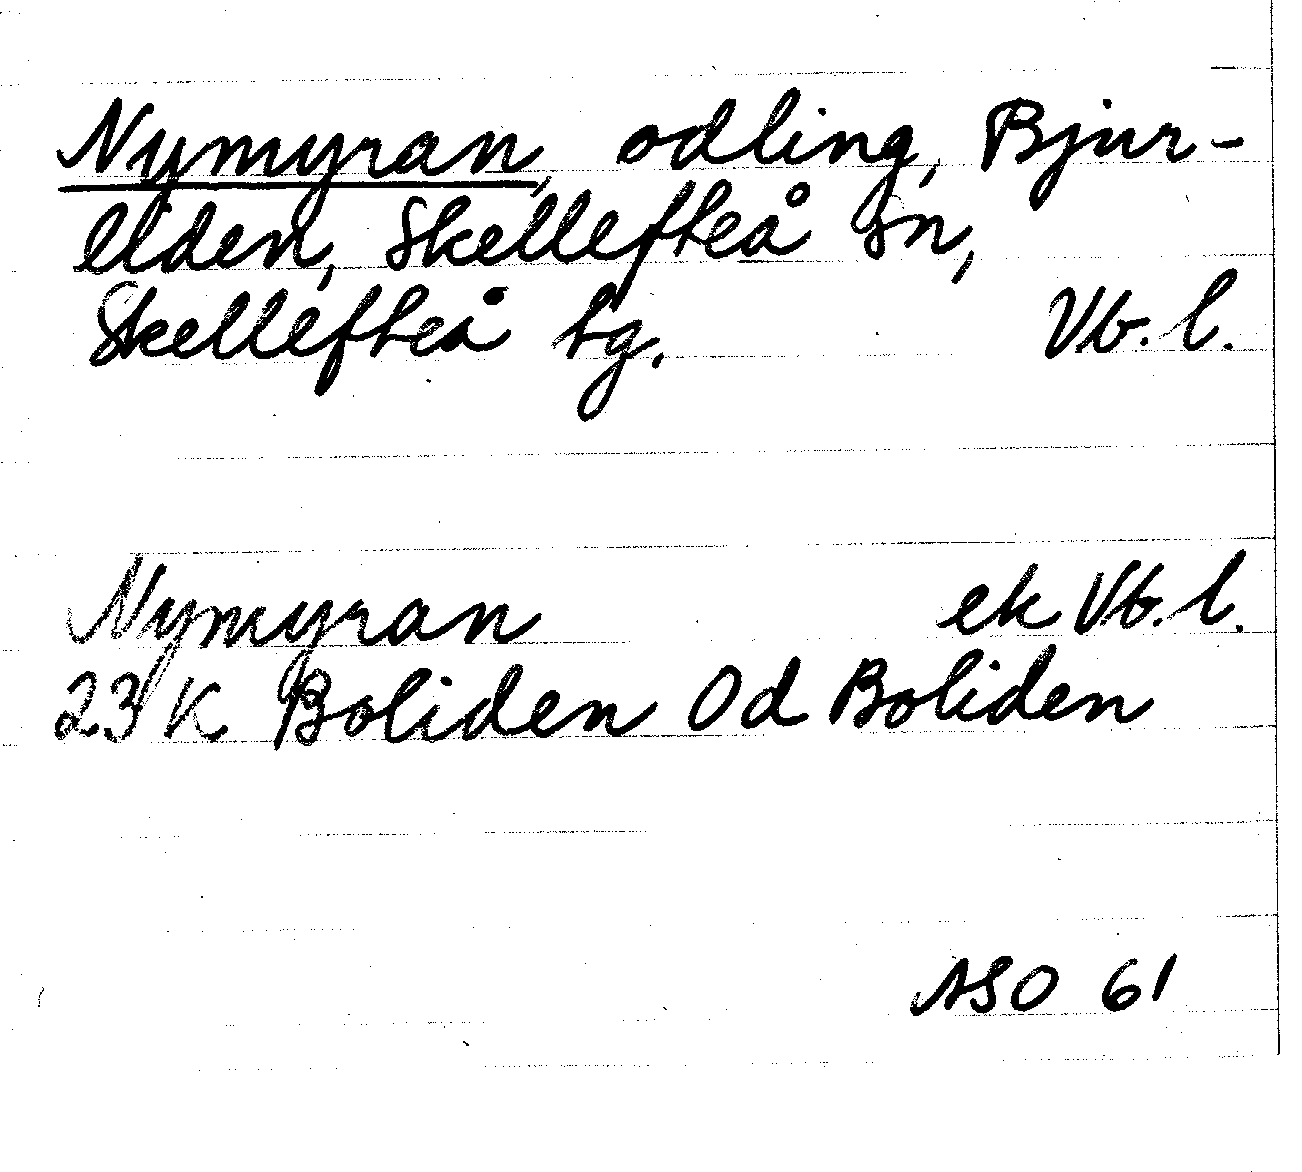 Nymyran, odling, Bjur-
liden, Skellefteå sn,
Skellefteå tg. Vb. l.
Nymyran ek Vb. l.
23 K Boliden Od Boliden
ASO 61